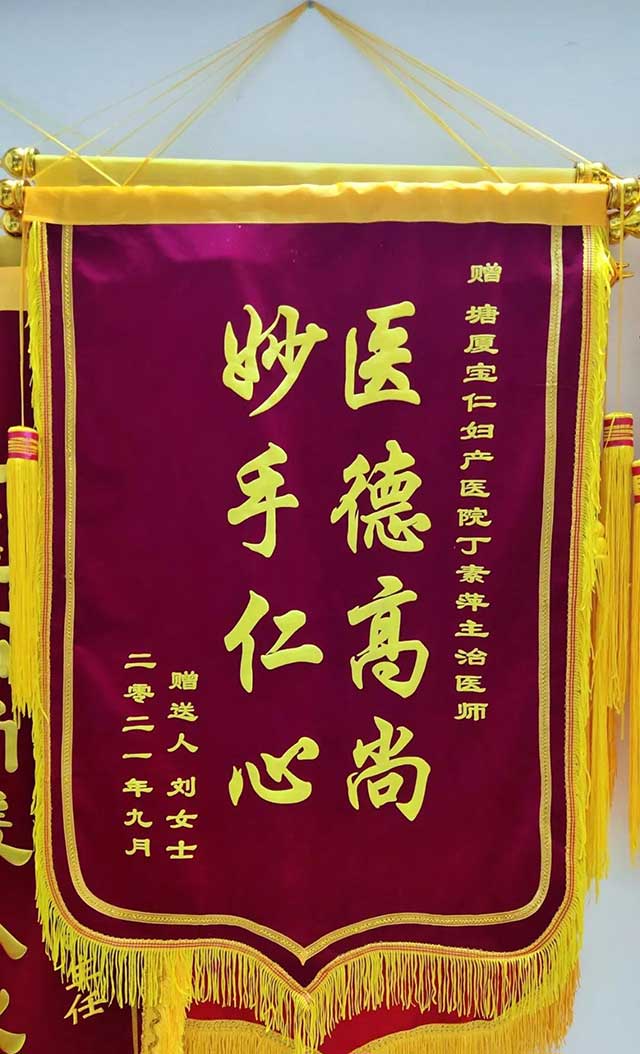 赠 塘厦宝仁妇产医院丁素萍主治医师
医德高尚
妙手仁心
赠送人 刘女士
二零二一年九月